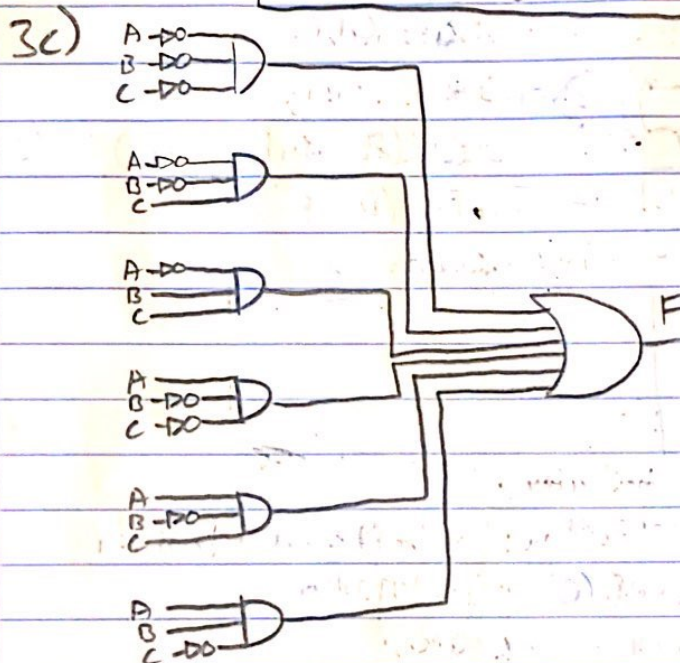 3c)
A
B
C
A
B
C
A
B
C
A
B
C
A
B
C
A
B
C
F